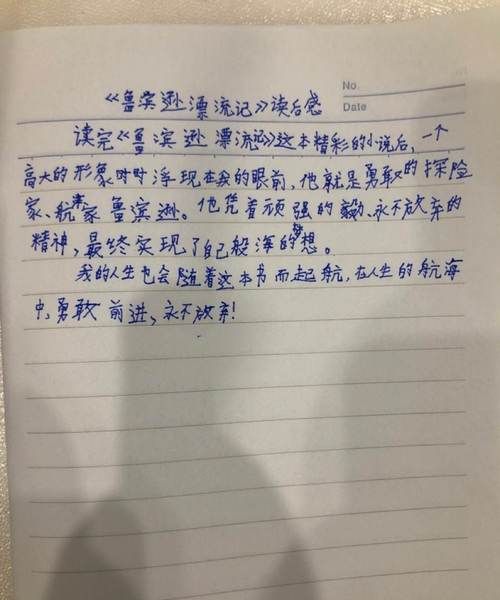 No.
《鲁滨逊漂流记》读后感
Date
读完《鲁滨逊漂流记》这本精彩的小说后,一个
高大的形象时时浮现在我的眼前,他就是勇敢的探险
家、航海家鲁滨逊。他凭着顽强的毅、永不放弃的
精神,最终实现了自己航海的梦想。
我的人生也会随着这本书而起航,在人生的航海
中,勇敢前进,永不放弃!